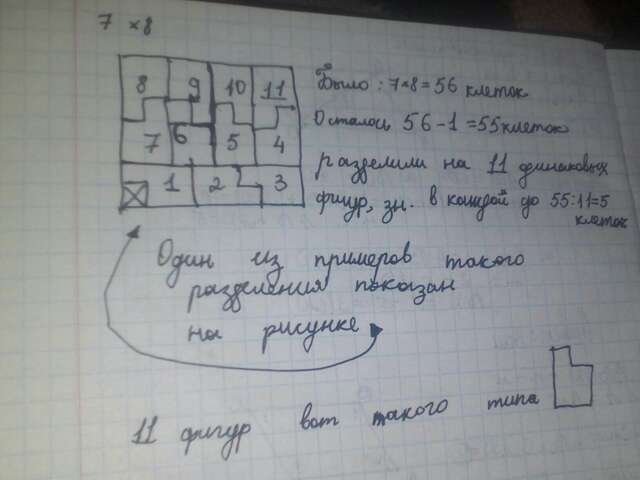 7 × 8
8 9 10 11
7 6 5 4
1 2 3
Было: 7×8=56 клеток
Осталось 56-1=55 клеток
разделили на 11 динаковых
фигур, зн. в каждой до 55:11=5
клеток
Один из примеров такого
разделения показан
на рисунке
11 фигур вот такого типа